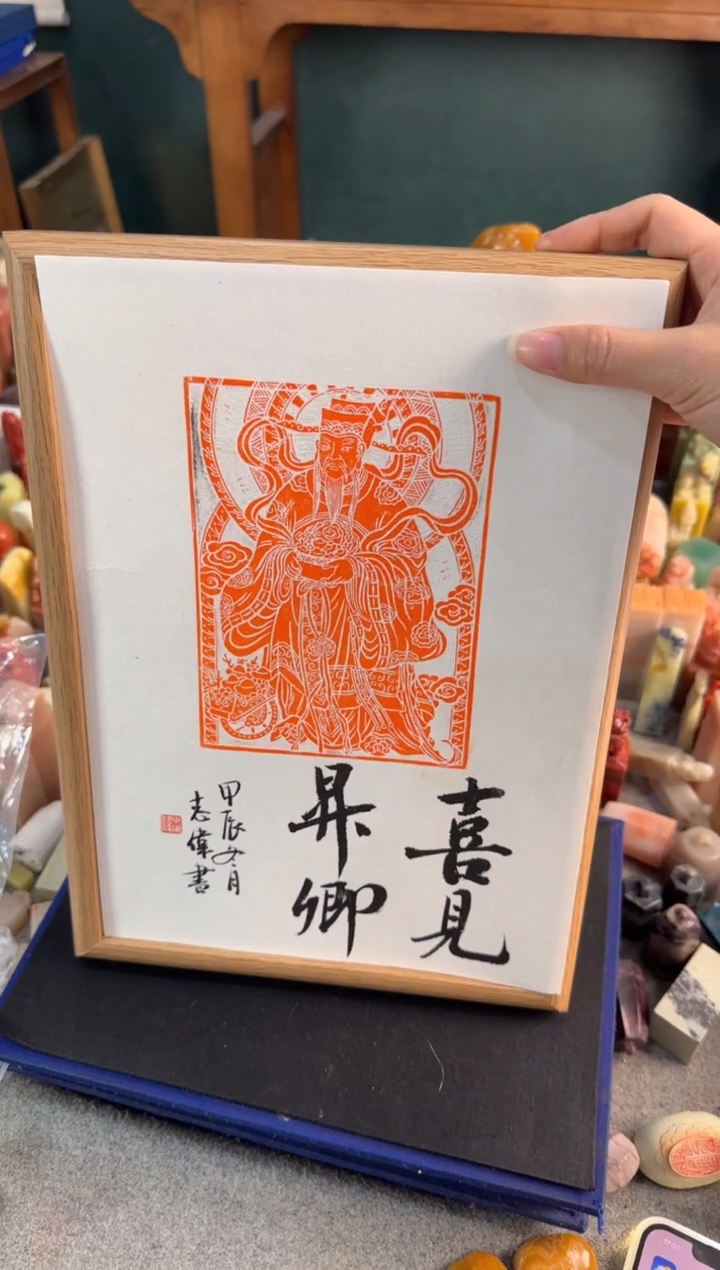 喜見
昇卿
甲辰冬月
志偉書